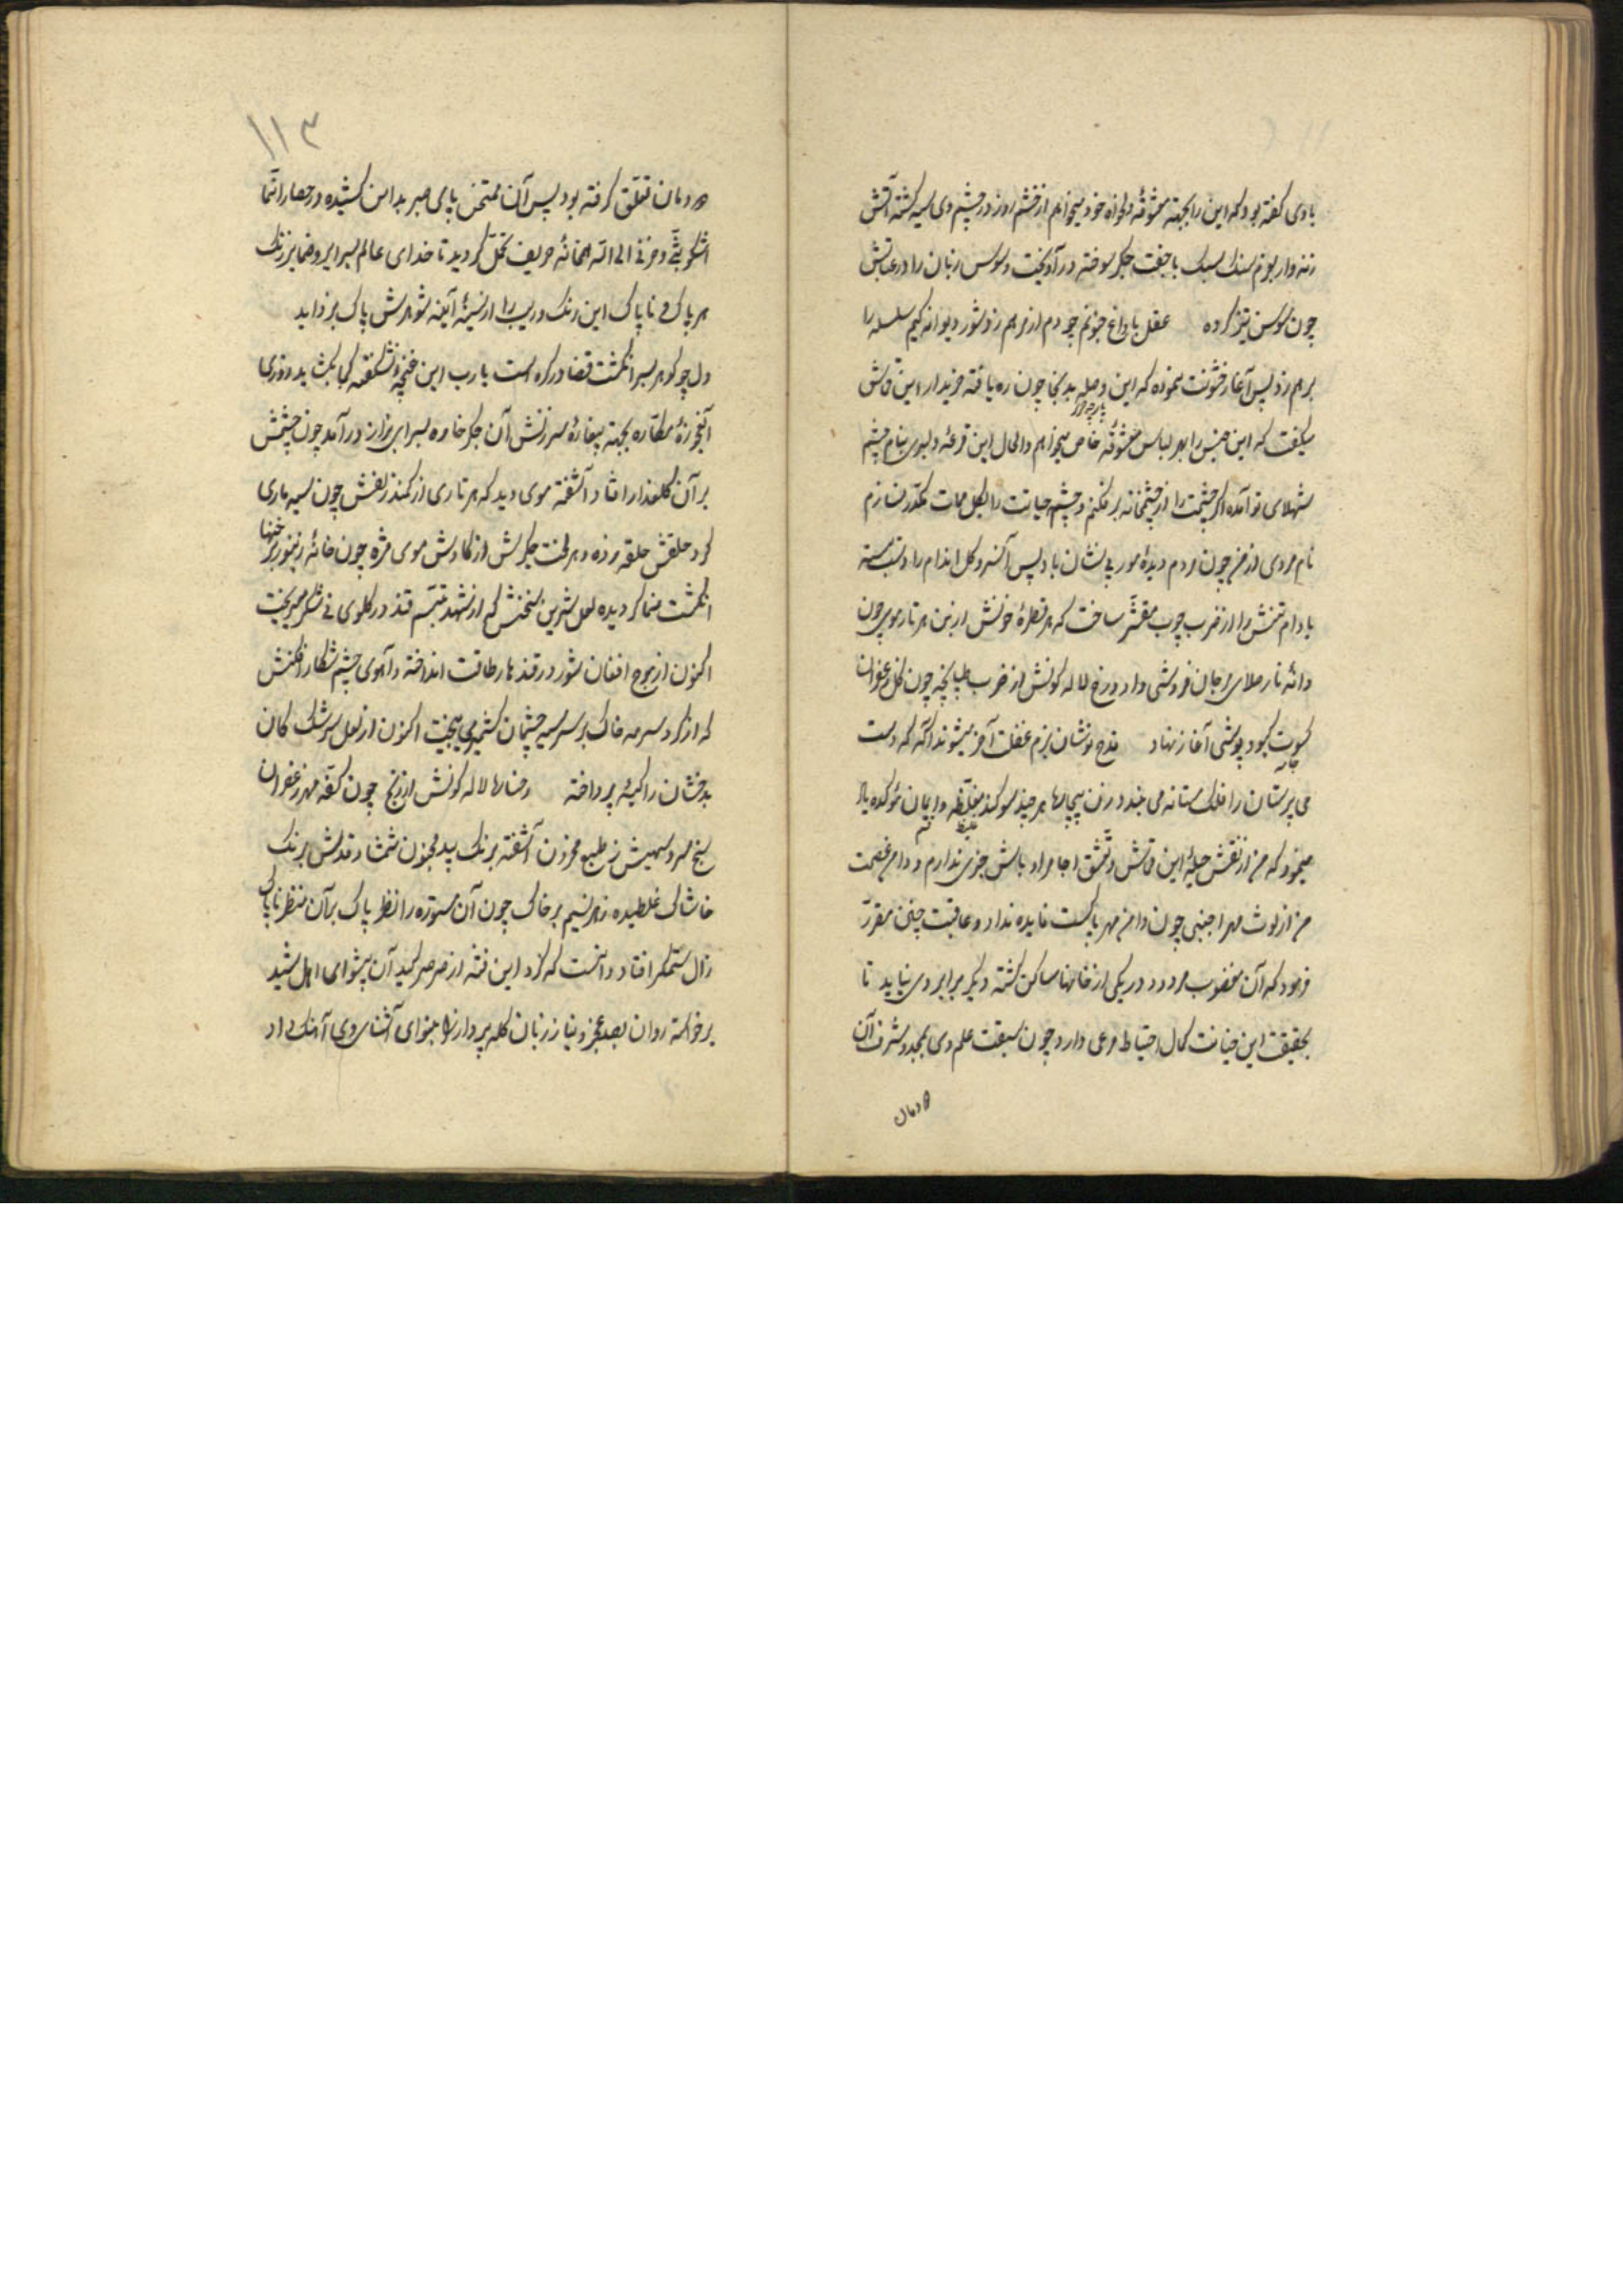 با وی گفته بود که این را بجهته معشوقهٔ دلخواه خود میخواهم از خشم روز در چشم وی سیه گشته آتش
زنه وار بعزم سنگ سبک با جفت جگر سوخته در آویخت و سوسن زبان را در عتابش
چون سوسن تیز کرده عقل با داغ جنونم چو دم از مرهم زد شور دیوانگیم سلسله را
برهم زد پس آغاز خشونت نموده که این وصله بدینجا چون ره یافته خریدار این قماش
میگفت که این جنس را بهر لباس معشوقهٔ خاص میخواهم والحال این قرعه
شهلای تو آمده اگر چشمت را از چشمخانه بر نکنم و چشمهٔ حیاتت را بگل ممات مکدر نسازم
نام مردی از من چون مردم دیدهٔ مور بی نشان باد پس آن سرو گل اندام را دست بسته
بادام تنش را از ضرب چوب مقشّر ساخت که هر قطرهٔ خونش از بن هر تار موی چون
دانه نار صلای مرجان فروشی داد و رخ لاله گونش از ضرب طپانچه چون گل زعفران
کسوت کبود پوشی آغاز نهاد قدح نوشان بزم غفلت آخر میشوند آگه که دست
می پرستان را فلک مستانه می بندد زن بیچاره هر چند سوگند مغلّظه و ایمان مؤکده یاد
مینمود که من از نقش حیلهٔ این قماش و تمشق اجامر و اوباش خبری ندارم و دامن عصمت
من از لوث مهر اجنبی چون دامن مهر پاکست فایده نداد و عاقبت چنین مقرّر
فرمود که آن مغضوب مردود در یکی از خانها ساکن گشته دیگر برابر وی نیاید تا
بحقیقت این خیانت کمال احتیاط مرعی دارد چون سبقت علم وی بمجد و شرف آن
دودمان
۱۱۳
دودمان تعلّق گرفته بود پس آن ممتحن پای صبر بدامن کشیده در حصار انّما
اشکو بثّی و حزنی الی الله همخانهٔ حریف تحمّل گردید تا خدای عالم بسرایر و ضمایر زنگ
هر پاک و ناپاک این زنگ و ریب را از سینهٔ آینه شوهرش پاک بزداید
دل چو گوهر بسر انگشت قضا در گره است یارب این غنچهٔ نشکفته کجا بگشاید روزی
آنعجوزهٔ مکّاره بجهته بیغاره و سرزنش آن جگر خاره بسرای بزاز در آمد چون چشمش
بر آن گلعذار افتاد آشفته موی دید که هر تاری از کمند زلفش چون سیه ماری
گرد حلقش حلقه زده و هر لخت جگرش از کاوش موی مژه چون خانهٔ زنبور برخنها
انگشت نما گردیده لعل شیرین سخنش که از شهد تبسّم قند در گلوی نی شکر میریخت
اکنون از موج افغان شور در قندهار طاقت انداخته و آهوی چشم شکار افکنش
که از گرد سرمه خاک بر سر سیه چشمان کشمیر می بیخت اکنون از لعل سرشک کان
بدخشان را کیسه پرداخته رخسارهٔ لاله گونش از رنج چون کفّه مهر زعفران
سنج سرو سهیش ز طبع محزون آشفته برنگ بید مجنون شمشاد قدش برنگ
خاشاک غلطیده ز هر نسیم بر خاک چون آن مستوره را نظر پاک بر آن منظر ناپاک
زال ستمگر افتاد دانست که گرد این فتنه از صرصر کید آن پیشوای اهل شید
برخاسته روان بصد عجز و نیاز زبان گله پرداز را بنوای آشنا روی آهنگ داد